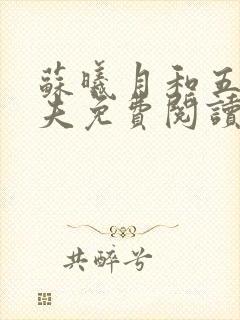 蘇曦月和五
夫免費閱讀
共醉兮